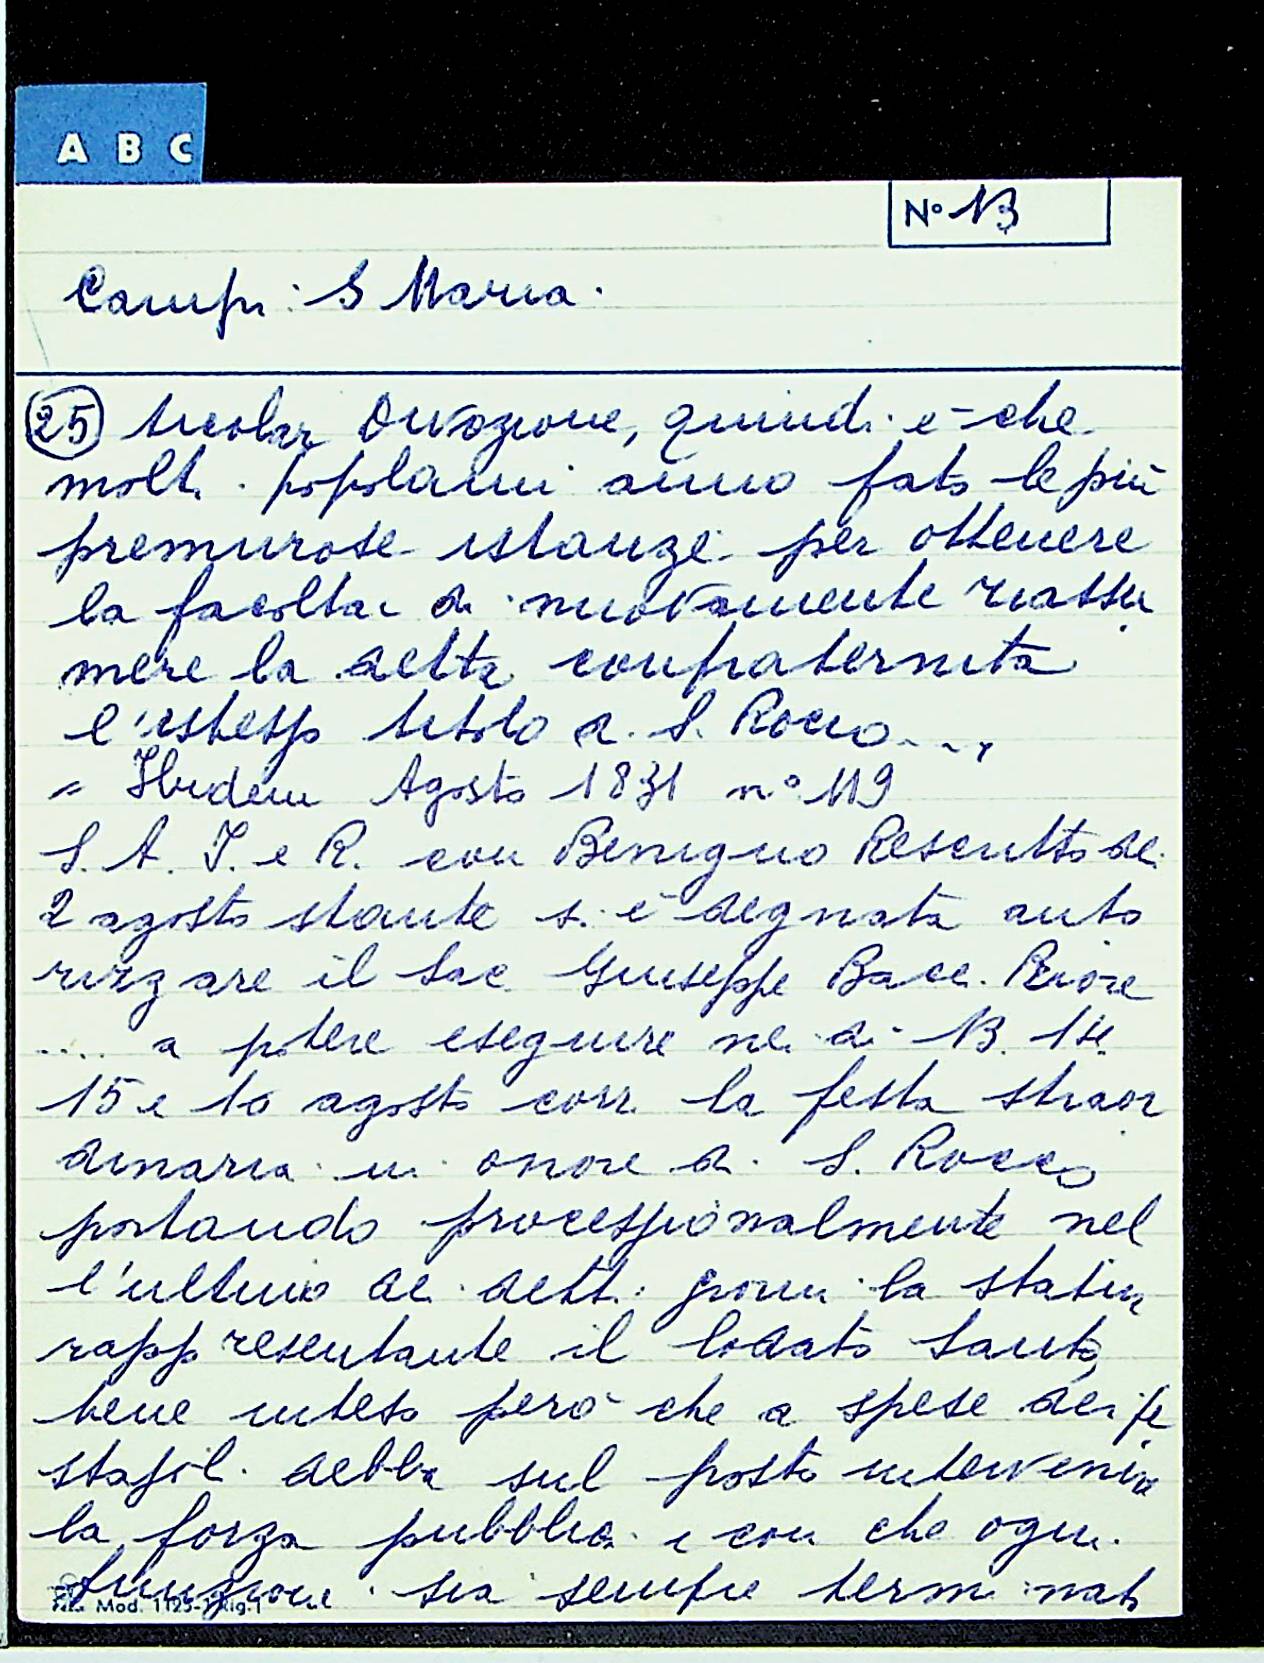 A B C
N° 13
Campi: S Maria.
25 ticolar Divozione, quindi è che
molti popolani anno fato le più
premurose istanze per ottenere
la facoltà di nuovamente riassu
mere la detta confraternita
l'istesso titolo di S. Rocco....
= Ibidem Agosto 1831 n° 119
S. A. I. e R. con Benigno Rescritto del
2 agosto stante si è degnata auto
rizzare il Sac. Giuseppe Bacc. Priore
.... a potere eseguire nei di 13. 14.
15 e 16 agosto corr. la festa straor
dinaria in onore di S. Rocco
portando processionalmente nel
l'ultimo dei detti giorni la statua
rappresentante il lodato Santo,
bene inteso però che a spese dei fe
staioli debba sul posto intervenire
la forza pubblica e con che ogni
funzione sia sempre terminata
Mod. 1125-1 Rig. 1